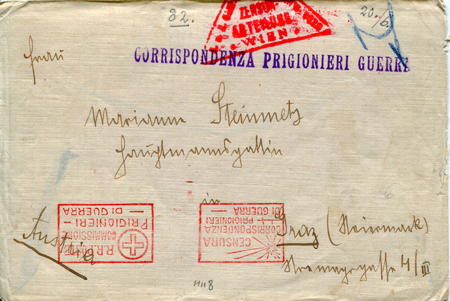 32.
Frau
ZENSUR
WIEN
CORRISPONDENZA PRIGIONIERI GUERRA
Marianne Steinmetz
Hauptmannsgattin
in
Graz (Steiermark)
Austria
4/III
R.R. POSTE
COMMISSIONE
PRIGIONIERI
DI GUERRA
CENSURA
CORRISPONDENZA
PRIGIONIERI
DI GUERRA